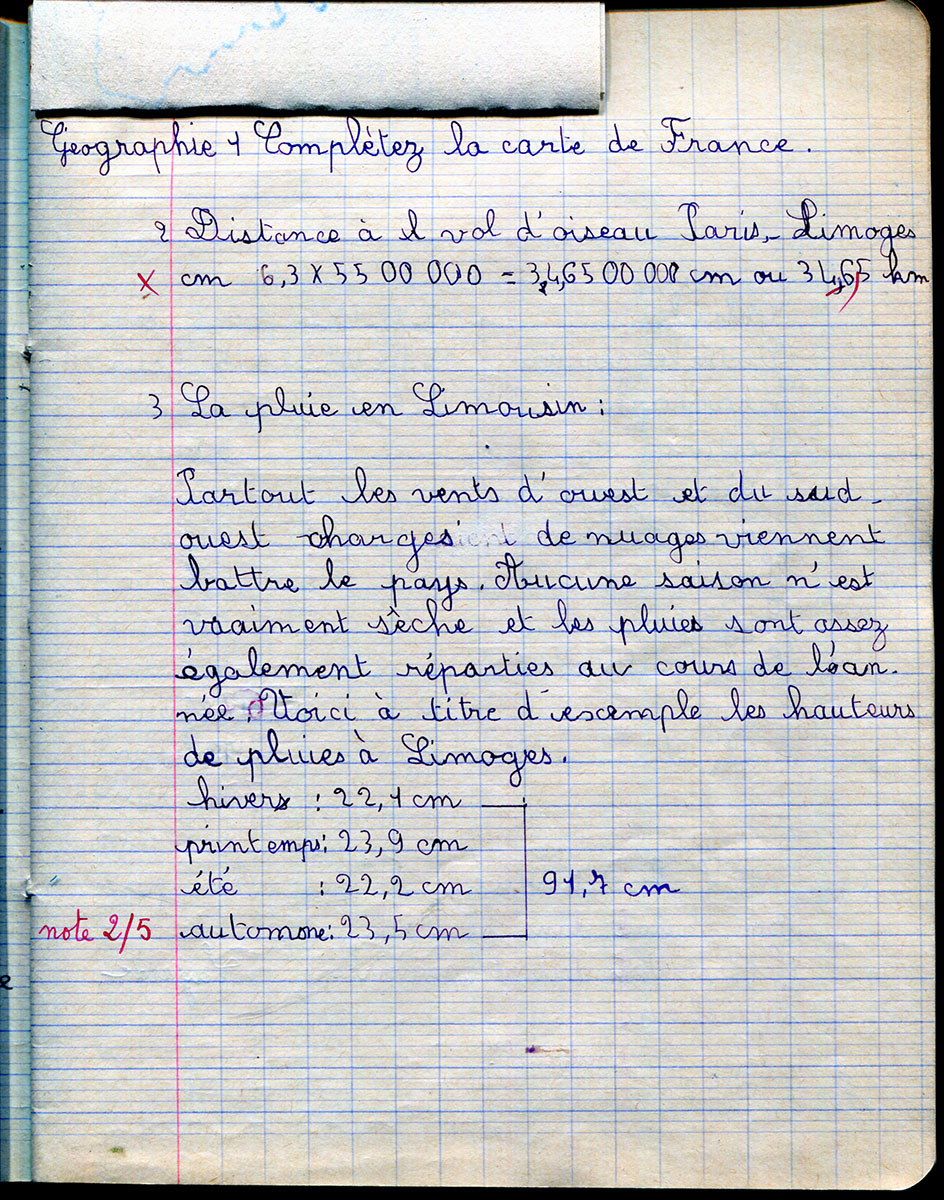 Géographie 1 Complétez la carte de France.
2 Distance à l vol d'oiseau Paris - Limoges
x cm 6,3 x 55 00 000 = 34,65 00 000 cm ou 34,65 km
3 La pluie en Limousin :
Partout les vents d'ouest et du sud-
ouest chargés de nuages viennent
battre le pays. Aucune saison n'est
vraiment sêche et les pluies sont assez
également réparties au cours de l'an-
née. Voici à titre d'exemple les hauteurs
de pluies à Limoges.
hivers : 22,1 cm
printemps : 23,9 cm
été : 22,2 cm 91,7 cm
note 2/5 automone : 23,5 cm